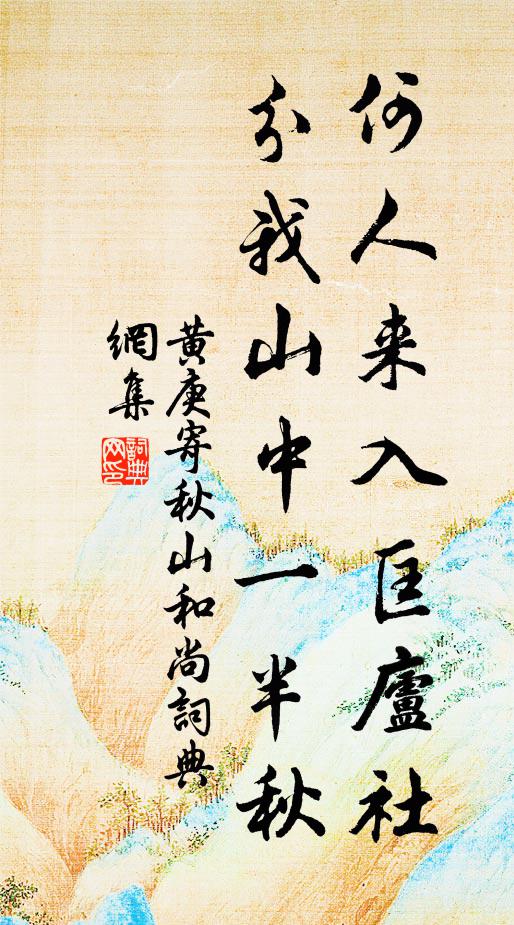 何人来入匡廬社
分我山中一半秋
黄庚寄秋山和尚詞典
網集
詞典網印